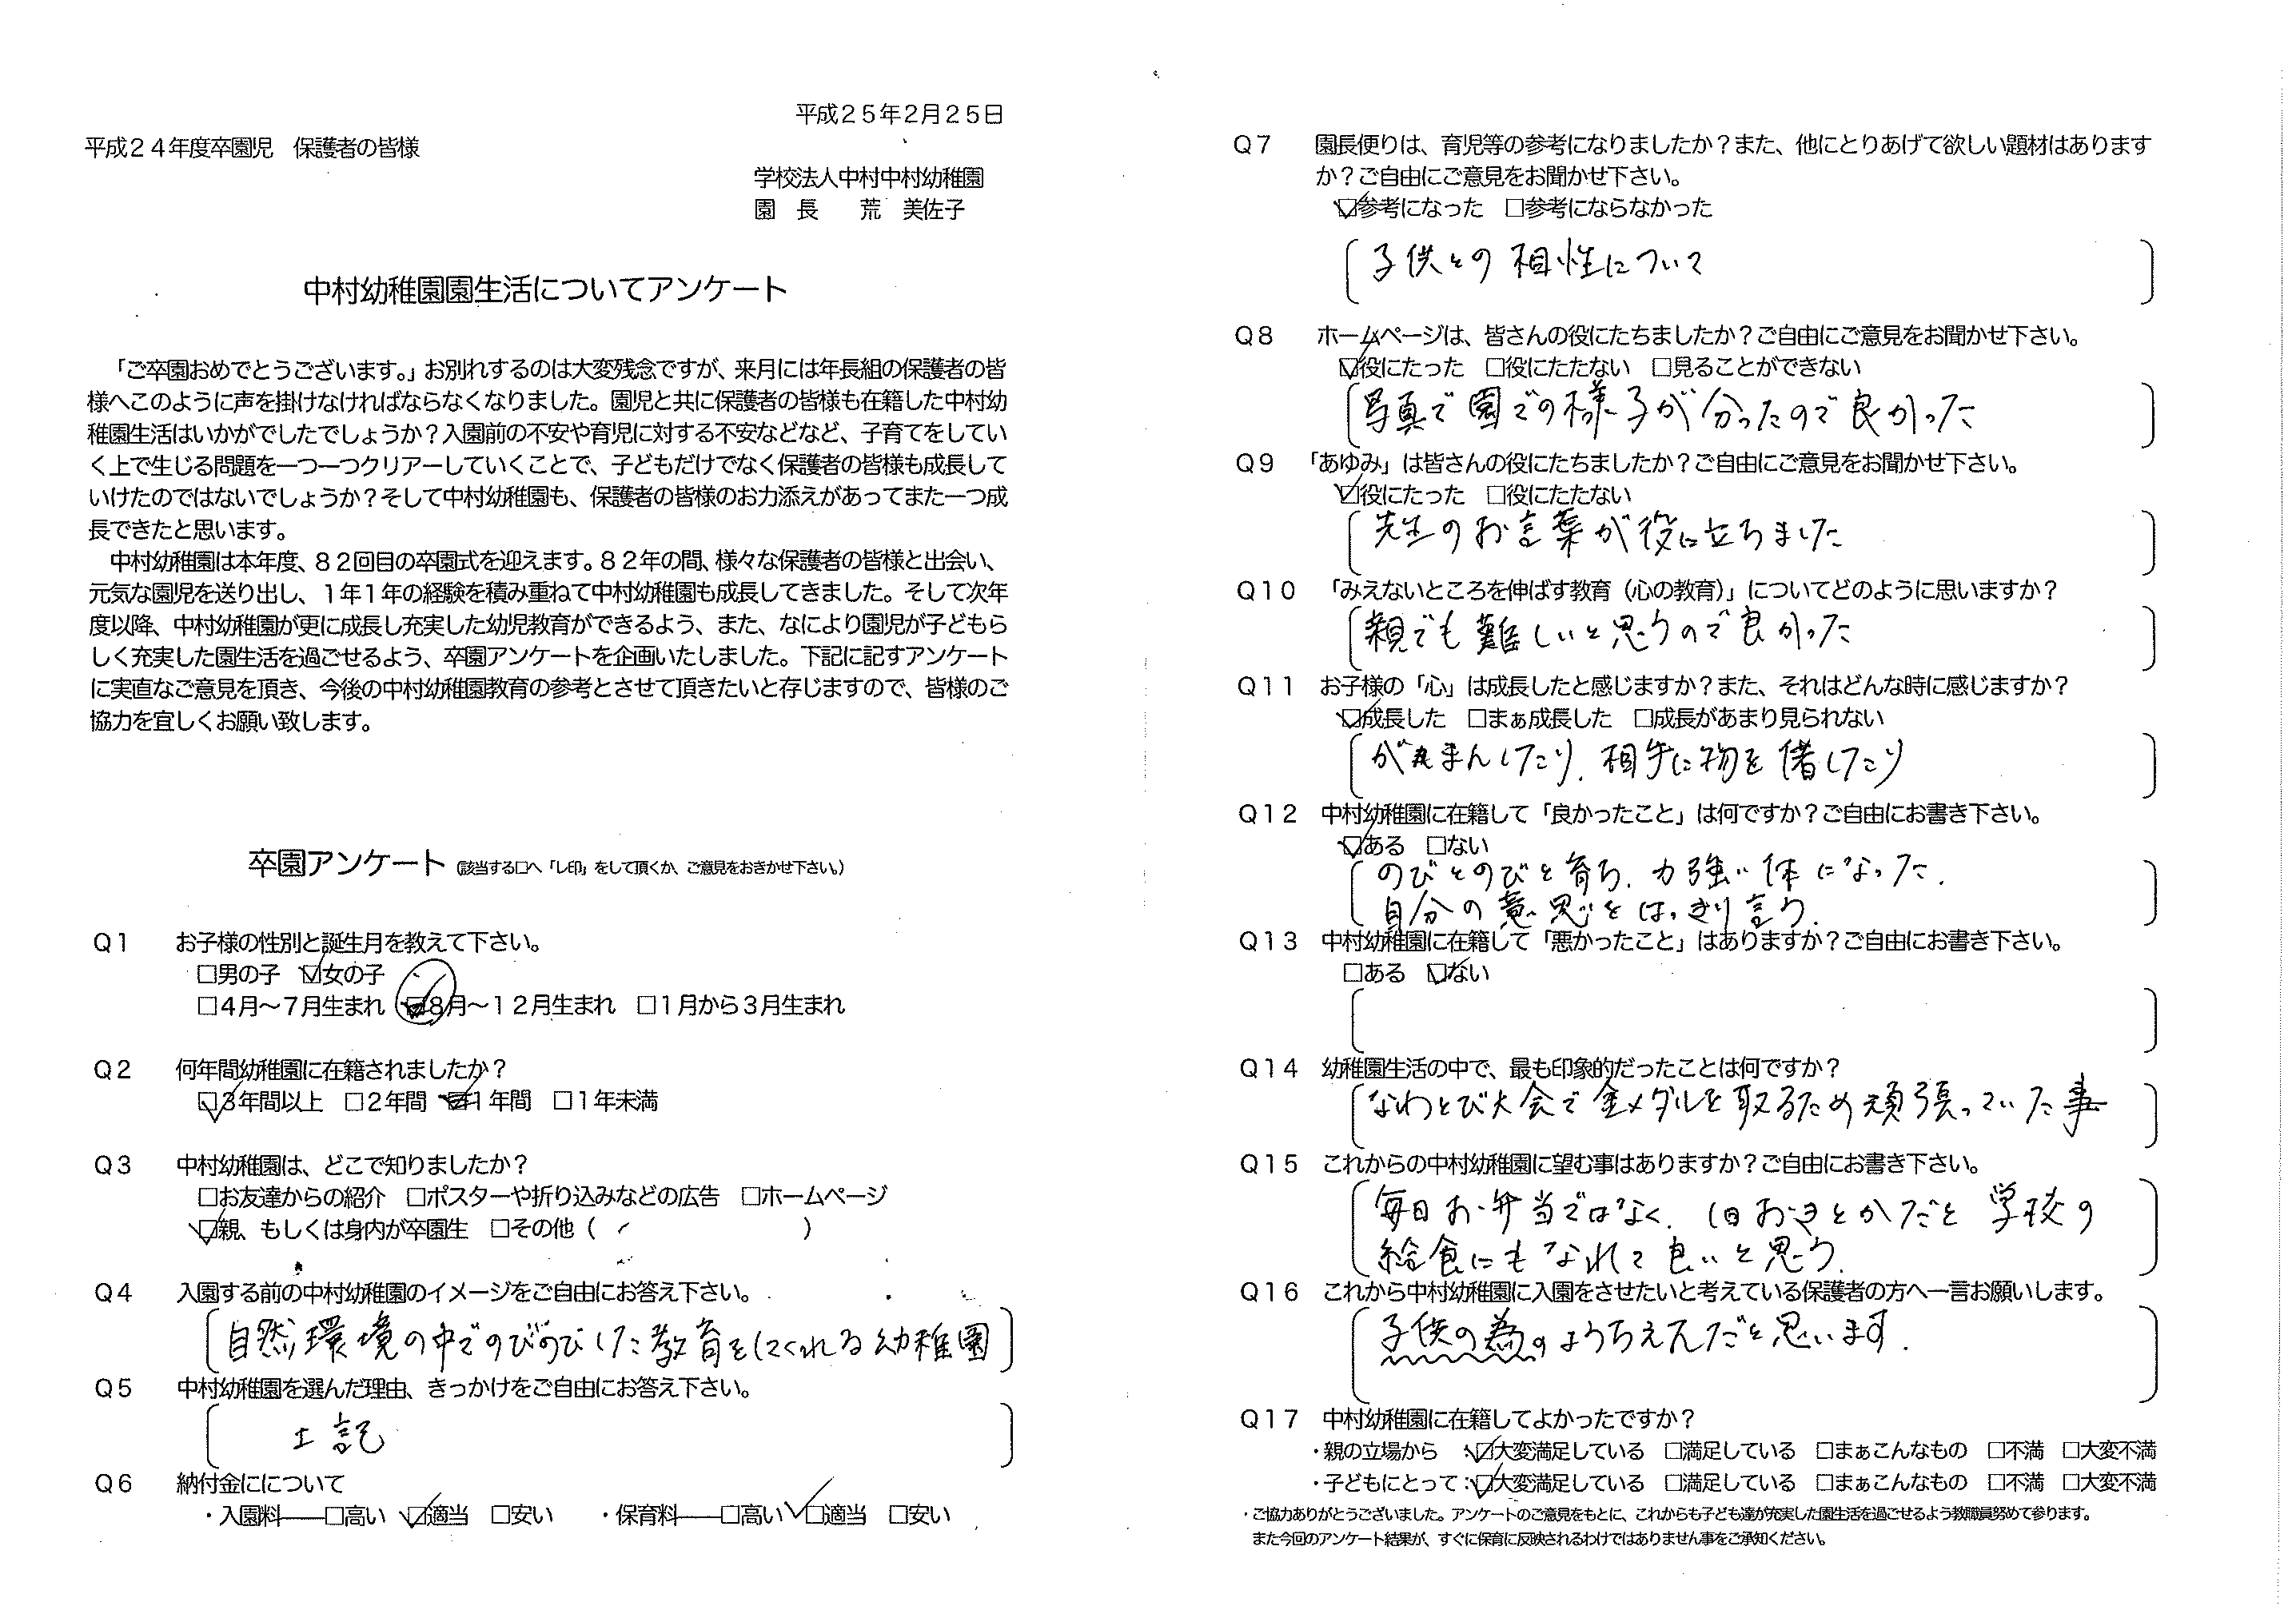 平成２５年２月２５日
平成２４年度卒園児　保護者の皆様
学校法人中村中村幼稚園
園　長　　荒　美佐子
中村幼稚園園生活についてアンケート
「ご卒園おめでとうございます。」お別れするのは大変残念ですが、来月には年長組の保護者の皆
様へこのように声を掛けなければならなくなりました。園児と共に保護者の皆様も在籍した中村幼
稚園生活はいかがでしたでしょうか？入園前の不安や育児に対する不安などなど、子育てをしてい
く上で生じる問題を一つ一つクリアーしていくことで、子どもだけでなく保護者の皆様も成長して
いけたのではないでしょうか？そして中村幼稚園も、保護者の皆様のお力添えがあってまた一つ成
長できたと思います。
中村幼稚園は本年度、８２回目の卒園式を迎えます。８２年の間、様々な保護者の皆様と出会い、
元気な園児を送り出し、１年１年の経験を積み重ねて中村幼稚園も成長してきました。そして次年
度以降、中村幼稚園が更に成長し充実した幼児教育ができるよう、また、なにより園児が子どもら
しく充実した園生活を過ごせるよう、卒園アンケートを企画いたしました。下記に記すアンケート
に実直なご意見を頂き、今後の中村幼稚園教育の参考とさせて頂きたいと存じますので、皆様のご
協力を宜しくお願い致します。
卒園アンケート（該当する□へ「レ印」をして頂くか、ご意見をおきかせ下さい。）
Ｑ１　お子様の性別と誕生月を教えて下さい。
□男の子　☑女の子
□４月～７月生まれ　☑８月～１２月生まれ　□１月から３月生まれ
Ｑ２　何年間幼稚園に在籍されましたか？
☑３年間以上　□２年間　■１年間　□１年未満
Ｑ３　中村幼稚園は、どこで知りましたか？
□お友達からの紹介　□ポスターや折り込みなどの広告　□ホームページ
☑親、もしくは身内が卒園生　□その他（　　　　　　　　　）
Ｑ４　入園する前の中村幼稚園のイメージをご自由にお答え下さい。
自然環境の中でのびのびした教育をしてくれる幼稚園
Ｑ５　中村幼稚園を選んだ理由、きっかけをご自由にお答え下さい。
上記
Ｑ６　納付金にについて
・入園料――□高い　☑適当　□安い　　・保育料――□高い　☑適当　□安い
Ｑ７　園長便りは、育児等の参考になりましたか？また、他にとりあげて欲しい題材はあります
か？ご自由にご意見をお聞かせ下さい。
☑参考になった　□参考にならなかった
子供との相性について
Ｑ８　ホームページは、皆さんの役にたちましたか？ご自由にご意見をお聞かせ下さい。
☑役にたった　□役にたたない　□見ることができない
写真で園での様子が分ったので良かった
Ｑ９　「あゆみ」は皆さんの役にたちましたか？ご自由にご意見をお聞かせ下さい。
☑役にたった　□役にたたない
先生のお言葉が役に立ちました
Ｑ１０　「みえないところを伸ばす教育（心の教育）」についてどのように思いますか？
親でも難しいと思うので良かった
Ｑ１１　お子様の「心」は成長したと感じますか？また、それはどんな時に感じますか？
☑成長した　□まぁ成長した　□成長があまり見られない
がまんしたり、相手に物を借したり
Ｑ１２　中村幼稚園に在籍して「良かったこと」は何ですか？ご自由にお書き下さい。
☑ある　□ない
のびとのびと育ち、力強い体になった．
自分の意思をはっきり言う．
Ｑ１３　中村幼稚園に在籍して「悪かったこと」はありますか？ご自由にお書き下さい。
□ある　☑ない
Ｑ１４　幼稚園生活の中で、最も印象的だったことは何ですか？
なわとび大会で金メダルを取るため頑張っていた事
Ｑ１５　これからの中村幼稚園に望む事はありますか？ご自由にお書き下さい。
毎日お弁当ではなく、１日おきとかだと学校の
給食にもなれて良いと思う．
Ｑ１６　これから中村幼稚園に入園をさせたいと考えている保護者の方へ一言お願いします。
子供の為のようちえんだと思います．
Ｑ１７　中村幼稚園に在籍してよかったですか？
・親の立場から　：☑大変満足している　□満足している　□まぁこんなもの　□不満　□大変不満
・子どもにとって：☑大変満足している　□満足している　□まぁこんなもの　□不満　□大変不満
・ご協力ありがとうございました。アンケートのご意見をもとに、これからも子ども達が充実した園生活を過ごせるよう教職員努めて参ります。
また今回のアンケート結果が、すぐに保育に反映されるわけではありません事をご承知ください。